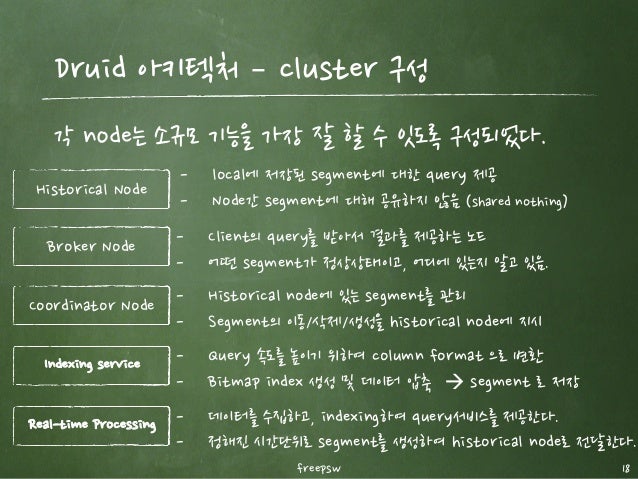 Druid 아키텍처 - cluster 구성
각 node는 소규모 기능을 가장 잘 할 수 있도록 구성되었다.
Historical Node
- local에 저장된 segment에 대한 query 제공
- Node간 segment에 대해 공유하지 않음 (shared nothing)
Broker Node
- Client의 query를 받아서 결과를 제공하는 노드
- 어떤 segment가 정상상태이고, 어디에 있는지 알고 있음.
Coordinator Node
- Historical node에 있는 segment를 관리
- Segment의 이동/삭제/생성을 historical node에 지시
Indexing service
- Query 속도를 높이기 위하여 column format 으로 변환
- Bitmap index 생성 및 데이터 압축 → segment 로 저장
Real-time Processing
- 데이터를 수집하고, indexing하여 query서비스를 제공한다.
- 정해진 시간단위로 segment를 생성하여 historical node로 전달한다.
freepsw
18